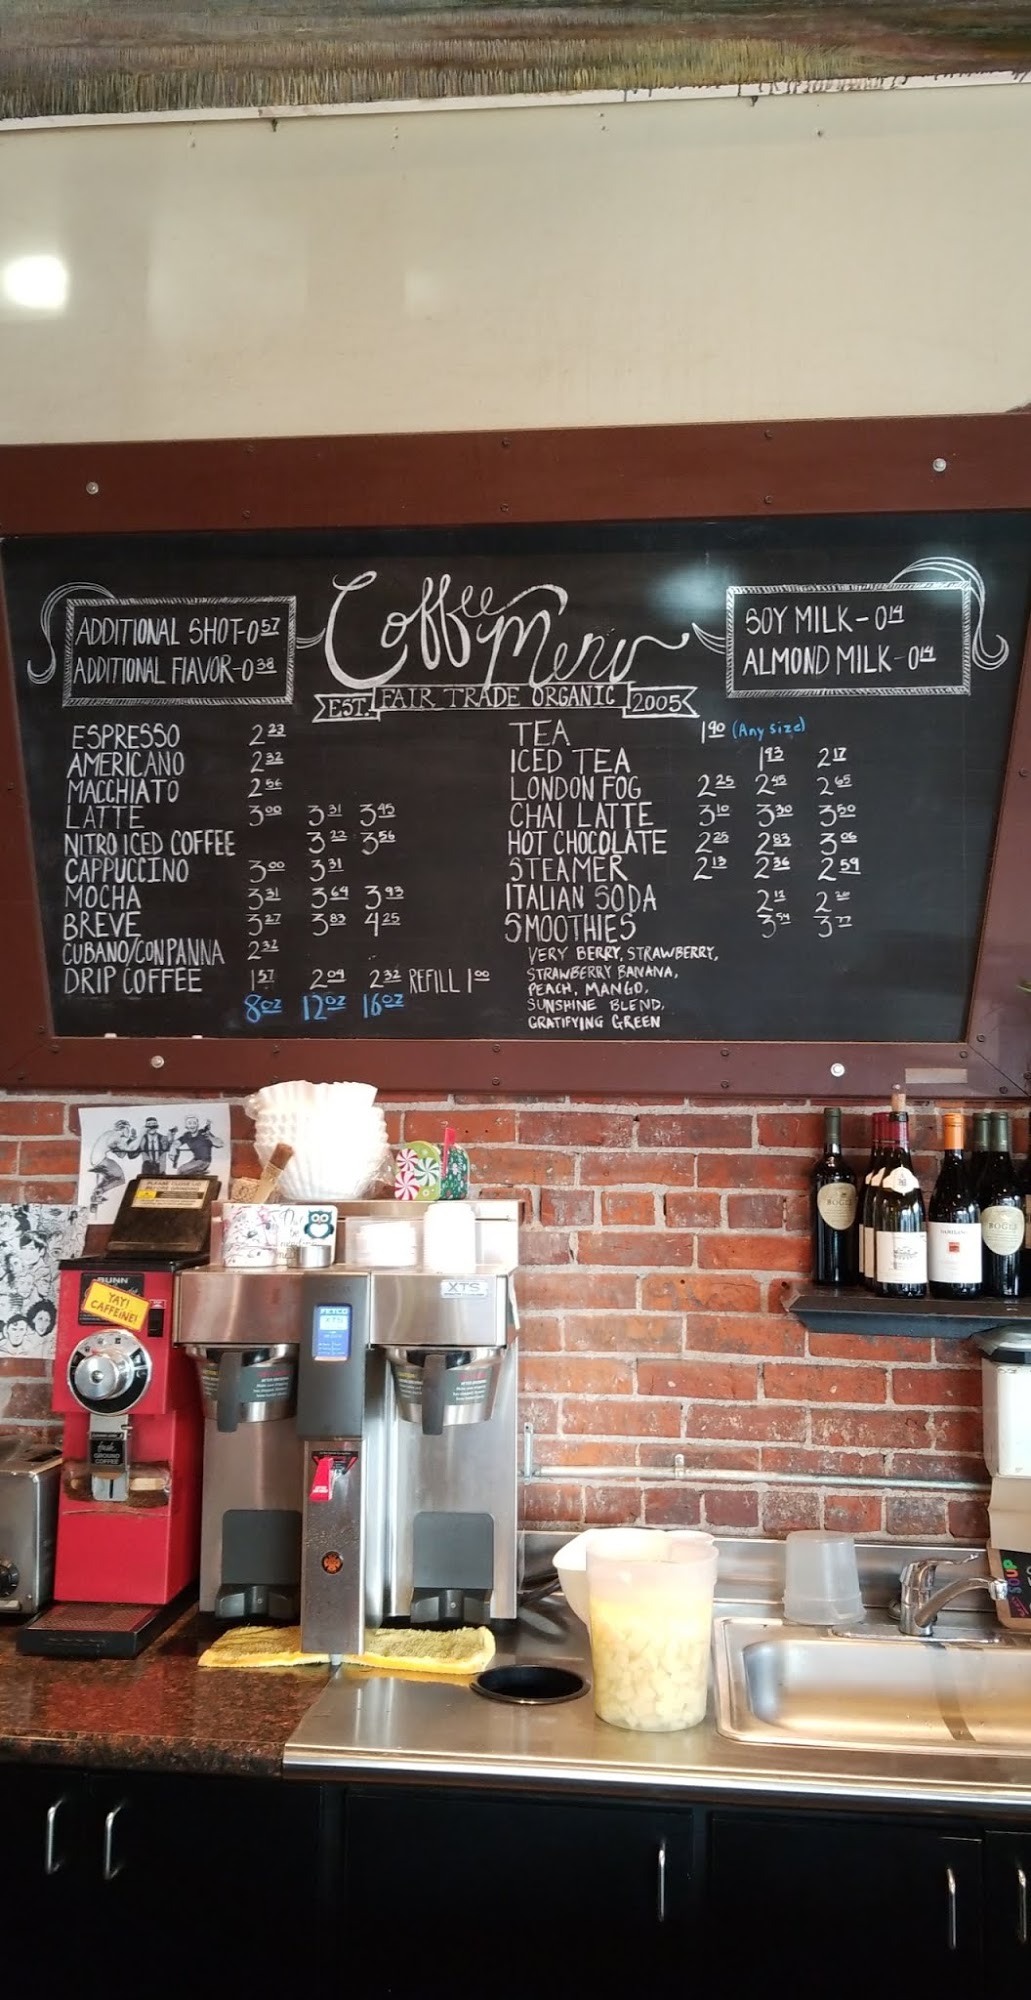 Coffee Menu
EST. FAIR TRADE ORGANIC 2005
ADDITIONAL SHOT-0 57
ADDITIONAL FLAVOR-0 38
SOY MILK-0 14
ALMOND MILK-0 14
ESPRESSO 2 23
AMERICANO 2 32
MACCHIATO 2 56
LATTE 3 00 3 31 3 45
NITRO ICED COFFEE 3 23 3 56
CAPPUCCINO 3 00 3 31
MOCHA 3 31 3 64 3 93
BREVE 3 27 3 83 4 25
CUBANO/CON PANNA 2 32
DRIP COFFEE 1 57 2 04 2 32 REFILL 1 00
8oz 12oz 16oz
TEA 1 90 (Any size)
ICED TEA 1 93 2 17
LONDON FOG 2 25 2 45 2 65
CHAI LATTE 3 10 3 30 3 50
HOT CHOCOLATE 2 25 2 83 3 06
STEAMER 2 13 2 36 2 59
ITALIAN SODA 2 12 2 20
SMOOTHIES 3 54 3 77
VERY BERRY, STRAWBERRY,
STRAWBERRY BANANA,
PEACH, MANGO,
SUNSHINE BLEND,
GRATIFYING GREEN
BUNN
YAY!
CAFFEINE!
fresh
GROUND
COFFEE
FETCO
XTS
XTS
BOGLE
BOGLE
SOUP